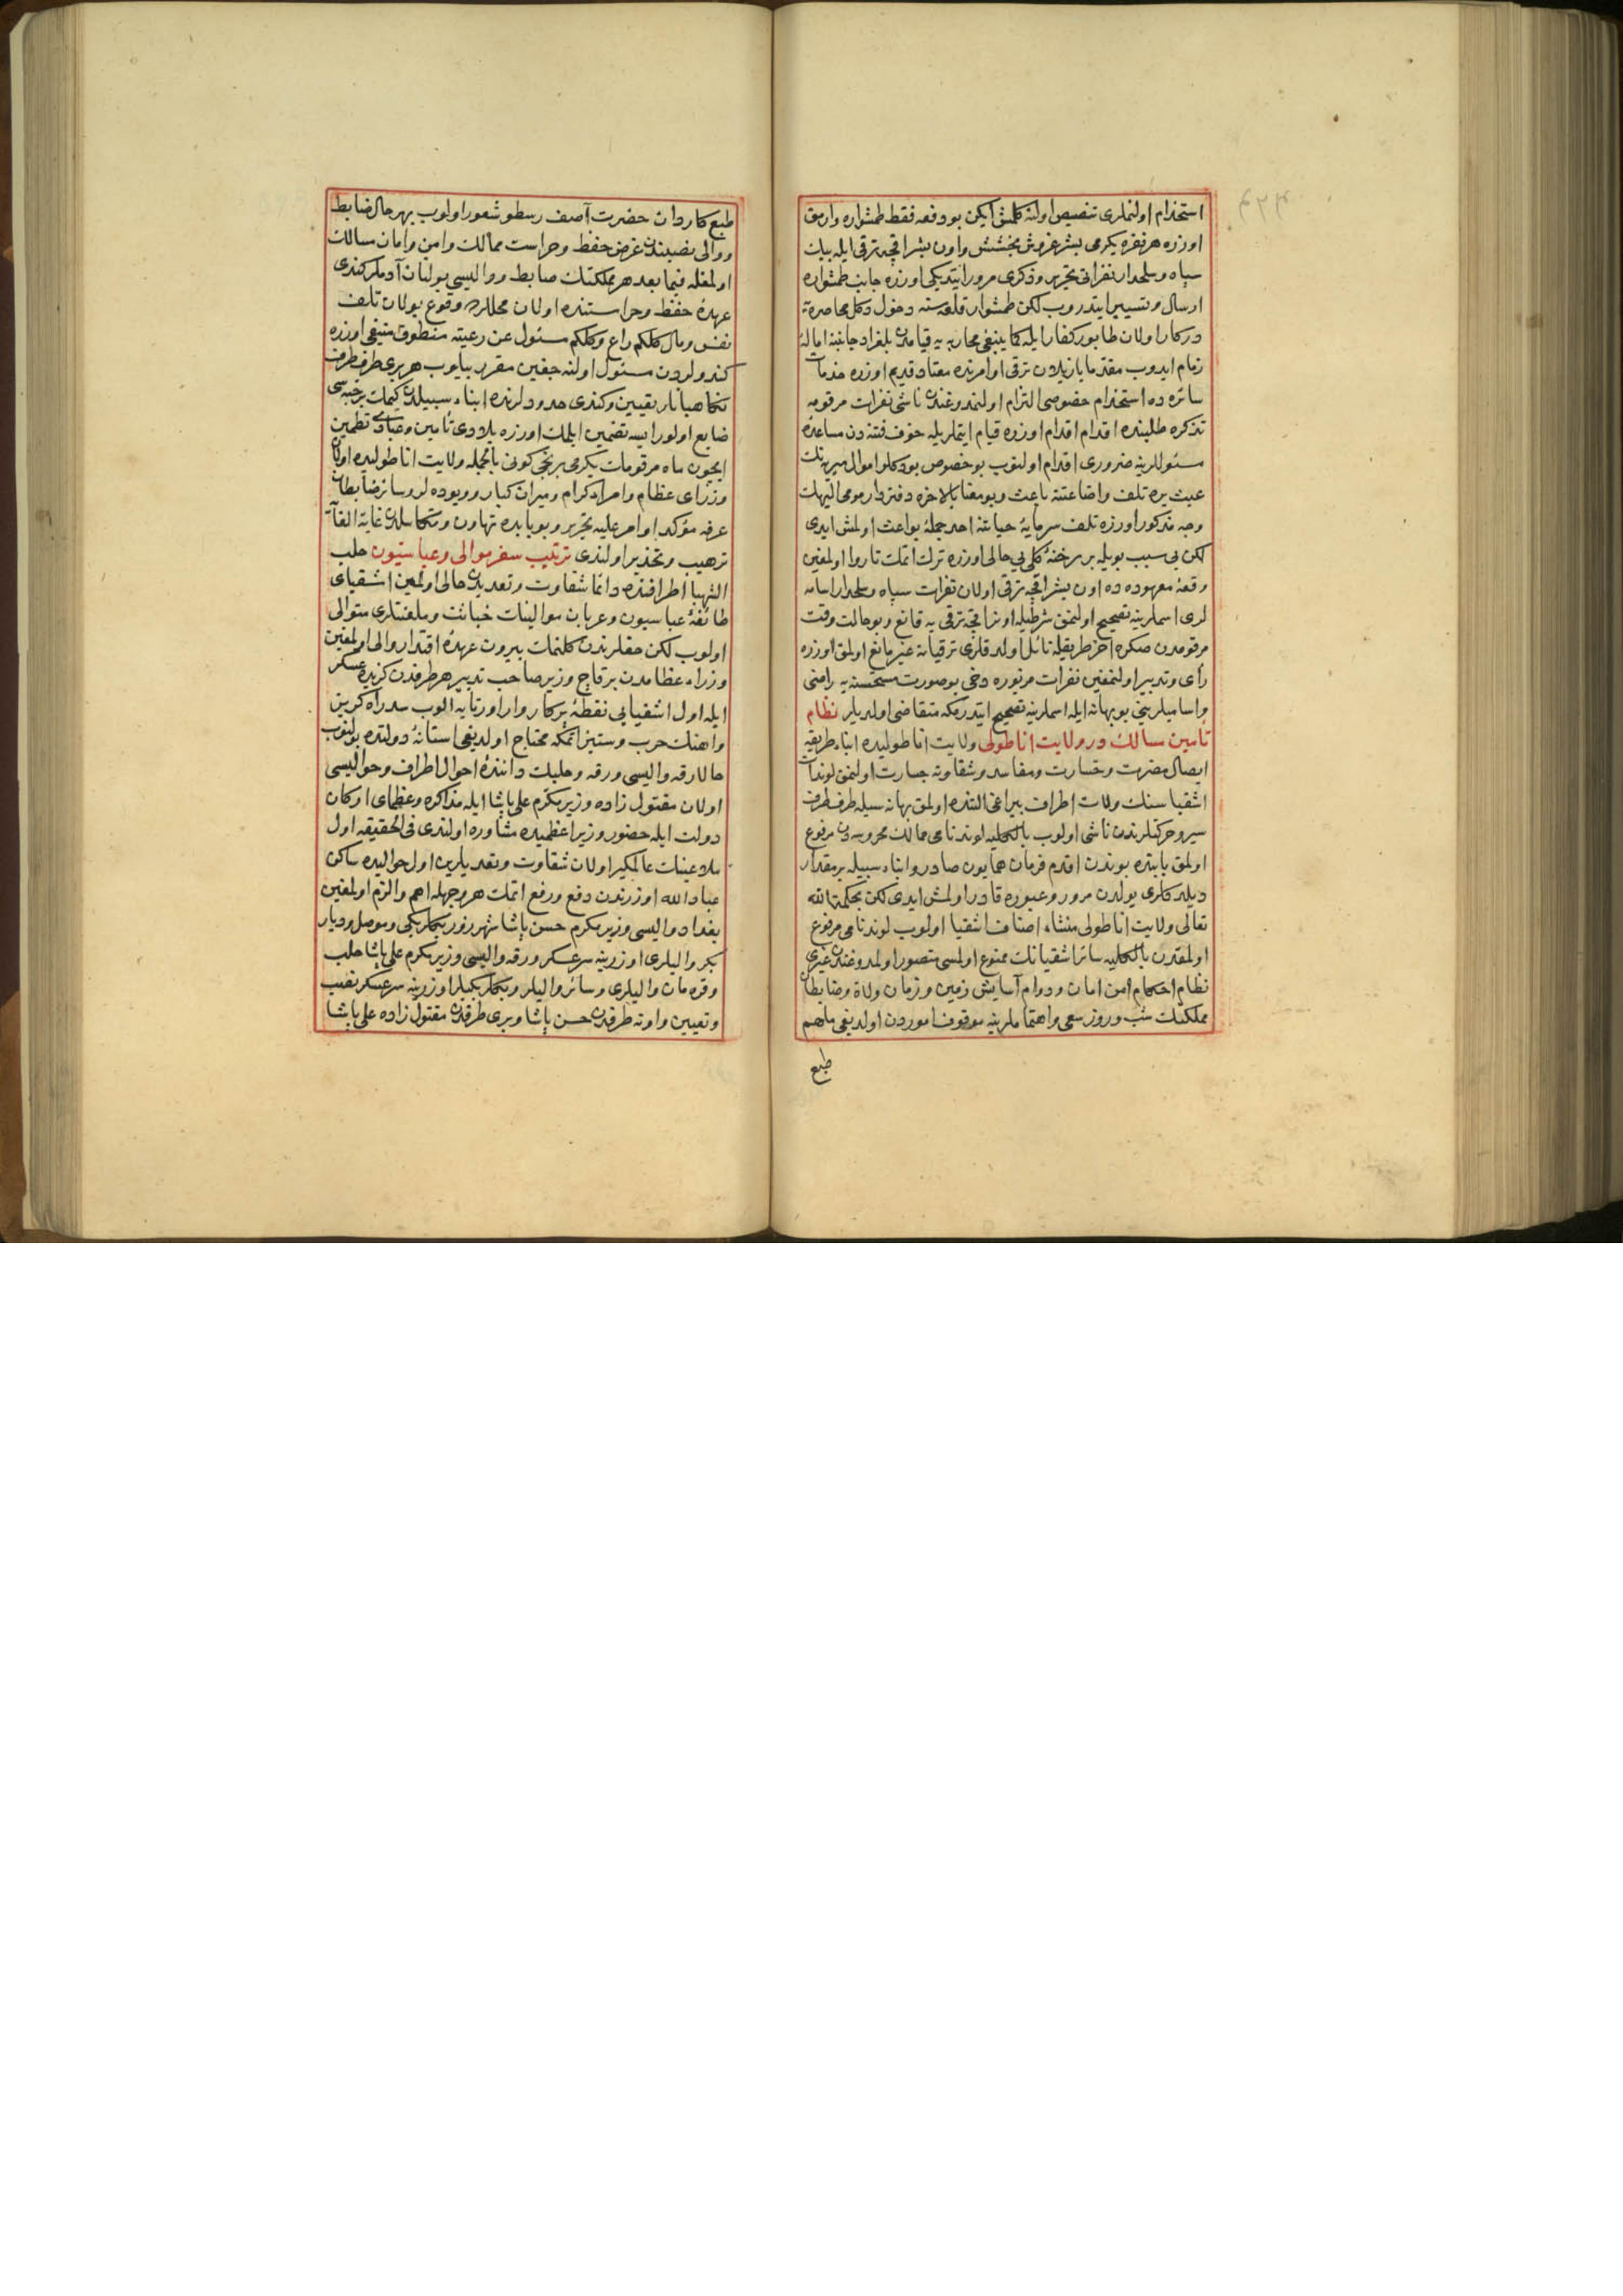 استخدام اولنملری تنصیص اولنه کلمش ایکن بو دفعه فقط طمشواره وارمق
اوزره هر نفره یکرمی بشر غروش بخشش و اون بشر اقچه ترقی ایله بیك
سپاه و سلحدار نفراتی تحریر و ذکری مرور ایتدیکی اوزره جانب طمشواره
ارسال و تسییر ایتدروب لکن طمشوار قلعه سنه دخول دکل محاصره یه
درکار اولان طابور کفار ایله کما ینبغی محاربه یه قیامدن بلغراد جانبنه اماله
زمام ایدوب مقدما یازیلان ترقی اوامرنده معتاد قدیم اوزره خدمات
سائره ده استخدام خصوصی التزام اولنمدوغندن ناشی نفرات مرقومه
تذکره طلبنده اقدام اقدام اوزره قیام ایتملریله خوف فتنه دن مساعده
مسئوللرینه ضروری اقدام اولنوب بو خصوص بو دکلو اموال میریه نك
عبث یره تلف و اضاعتنه باعث و بو معنا بالاخره دفتردار مومی الیهك
وجه مذکور اوزره تلف سرمایۀ حیاتنه احد جملۀ بواعث اولمش ایدی
لکن بی سبب بویله بر رخنۀ کلی بی حالی اوزره ترك اتمك ناروا اولمغین
وقعۀ معهوده ده اون بشر اقچه ترقی اولان نفرات سپاه و سلحدار اسامه
لری اسملرینه تصحیح اولنمق شرطیله اونر اقچه ترقی یه قانع و بو حالت وقت
مرقومدن صکره آخر طریقیله نائل اولدقلری ترقیاته غیر مانع اولمق اوزره
رأی و تدبیر اولنمغین نفرات مزبوره دخی بو صورت مستحسنه یه راضی
و اسامیلرینی بو بهانه ایله اسملرینه تصحیح ایتدرمکه متقاضی اولدیلر نظام
تأمین سالك در ولایت اناطولی ولایت اناطولیده ابناء طریقه
ایصال مضرت و خسارت و مفاسد و شقاوته جسارت اولنمق لوندات
اشقیاسنك ولات اطراف بیراغی التنده اولمق بهانه سیله طرف طرف
سیر و حرکتلرندن ناشی اولوب بالکلیه لوند نامی ممالك محروسه دن مرفوع
اولمق بابنده بوندن اقدم فرمان همایون صادر و ابناء سبیله بر مقدار
دیلدکلری یولدن مرور و عبوره قادر اولمش ایدی لکن بحکمة الله
تعالی ولایت اناطولی منشاء اصناف اشقیا اولوب لوند نامی مرفوع
اولمقدن بالکلیه سائر اشقیانك ممنوع اولمسی متصور اولمدوغندن غیری
نظام احکام امن امان و دوام آسایش زمین و زمان ولاة و ضابطان
مملکتك شب و روز سعی و اهتماملرینه موقوف اموردن اولدیغی ملهم
طبع
طبع کاردان حضرت آصف رسطو شعور اولوب بهر حال ضابط
و والی نصبندن غرض حفظ و حراست ممالك و امن و امان سالك
اولمغله فیما بعد هر مملکتك ضابط و والیسی بولنان آدملر کندی
عهدۀ حفظ و حراستنده اولان محللرده وقوع بولان تلف
نفس و مال کلکم راع و کلکم مسئول عن رعیته منطوق منیفی اوزره
کندولردن مسئول اولنه جغین مقرر بیلوب هر بری طرف طرف
نکاهبانلر تعیین و کندی حدودلرنده ابناء سبیلدن کیمك بر حبه سی
ضایع اولور ایسه تضمین ایلمك اوزره بلادی تأمین و عبادی تطمین
ایچون ماه مرقومك یکرمی برنجی کونی بالجمله ولایت اناطولیده اولان
وزرای عظام و امراء کرام و میران کبار و ویوده لر و سائر ضابطان
عرفه مؤکد اوامر علیه تحریر و بو بابده تهاون و تکاسلدن غایة الغایه
ترهیب و تحذیر اولندی ترتیب سفر موالی و عباسیون حلب
الشهبا اطرافنده دائما شقاوت و تعدیدن خالی اولمین اشقیای
طائفۀ عباسیون و عربان موالینك خباثت و ملعنتلری متوالی
اولوب لکن حقلرندن کلنمك بیرون عهدۀ اقتدار والی اولمغین
وزراء عظامدن بر قاچ وزیر صاحب تدبیر هر طرفدن کزیده عسکر
ایله اول اشقیایی نقطۀ پرکار وار اورتایه الوب سد راه کریز
و اهنك حرب و ستیز اتمکه محتاج اولدیغی استانۀ دولتده بولنوب
حالا رقه والیسی و رقه و حلبك دانندۀ احوال اطراف و حوالیسی
اولان مقتول زاده وزیر مکرم علی پاشا ایله مذاکره و عظمای ارکان
دولت ایله حضور وزیر اعظمیده مشاوره اولندی فی الحقیقه اول
ملاعینك عالمکیر اولان شقاوت و تعدیلرین اول حوالیده ساکن
عباد الله اوزرندن دفع و رفع اتمك هر وجهله اهم و الزم اولمغین
بغداد والیسی وزیر مکرم حسن پاشا شهرزور بکلربکی و موصل و دیار
بکر والیلری اوزرینه سرعسکر و رقه والیسی وزیر مکرم علی پاشا حلب
و قره مان والیلری و سائر والیلر و بکلربکیلر اوزرینه سرعسکر نصب
و تعیین و اوته طرفدن حسن پاشا و بری طرفدن مقتول زاده علی پاشا